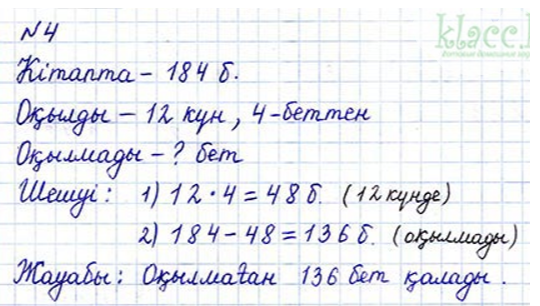 N4
klacc.
Кітапта – 184 б.
Оқылды – 12 күн, 4-беттен
Оқылмады – ? бет
Шешуі: 1) 12 · 4 = 48 б. (12 күнде)
2) 184 – 48 = 136 б. (оқылмады)
Жауабы: Оқылмаған 136 бет қалады.